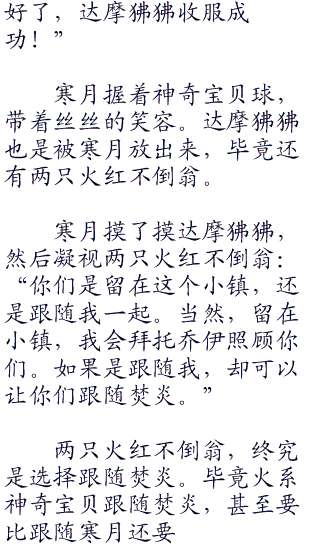 好了，达摩狒狒收服成
功！”
寒月握着神奇宝贝球，
带着丝丝的笑容。达摩狒狒
也是被寒月放出来，毕竟还
有两只火红不倒翁。
寒月摸了摸达摩狒狒，
然后凝视两只火红不倒翁：
“你们是留在这个小镇，还
是跟随我一起。当然，留在
小镇，我会拜托乔伊照顾你
们。如果是跟随我，却可以
让你们跟随焚炎。”
两只火红不倒翁，终究
是选择跟随焚炎。毕竟火系
神奇宝贝跟随焚炎，甚至要
比跟随寒月还要